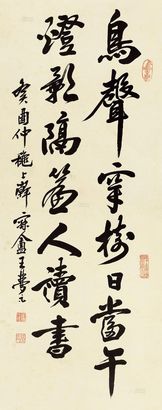 鳥聲穿樹日當午
燈影隔簾人讀書
癸酉仲秋上澣 寐盦王蘧